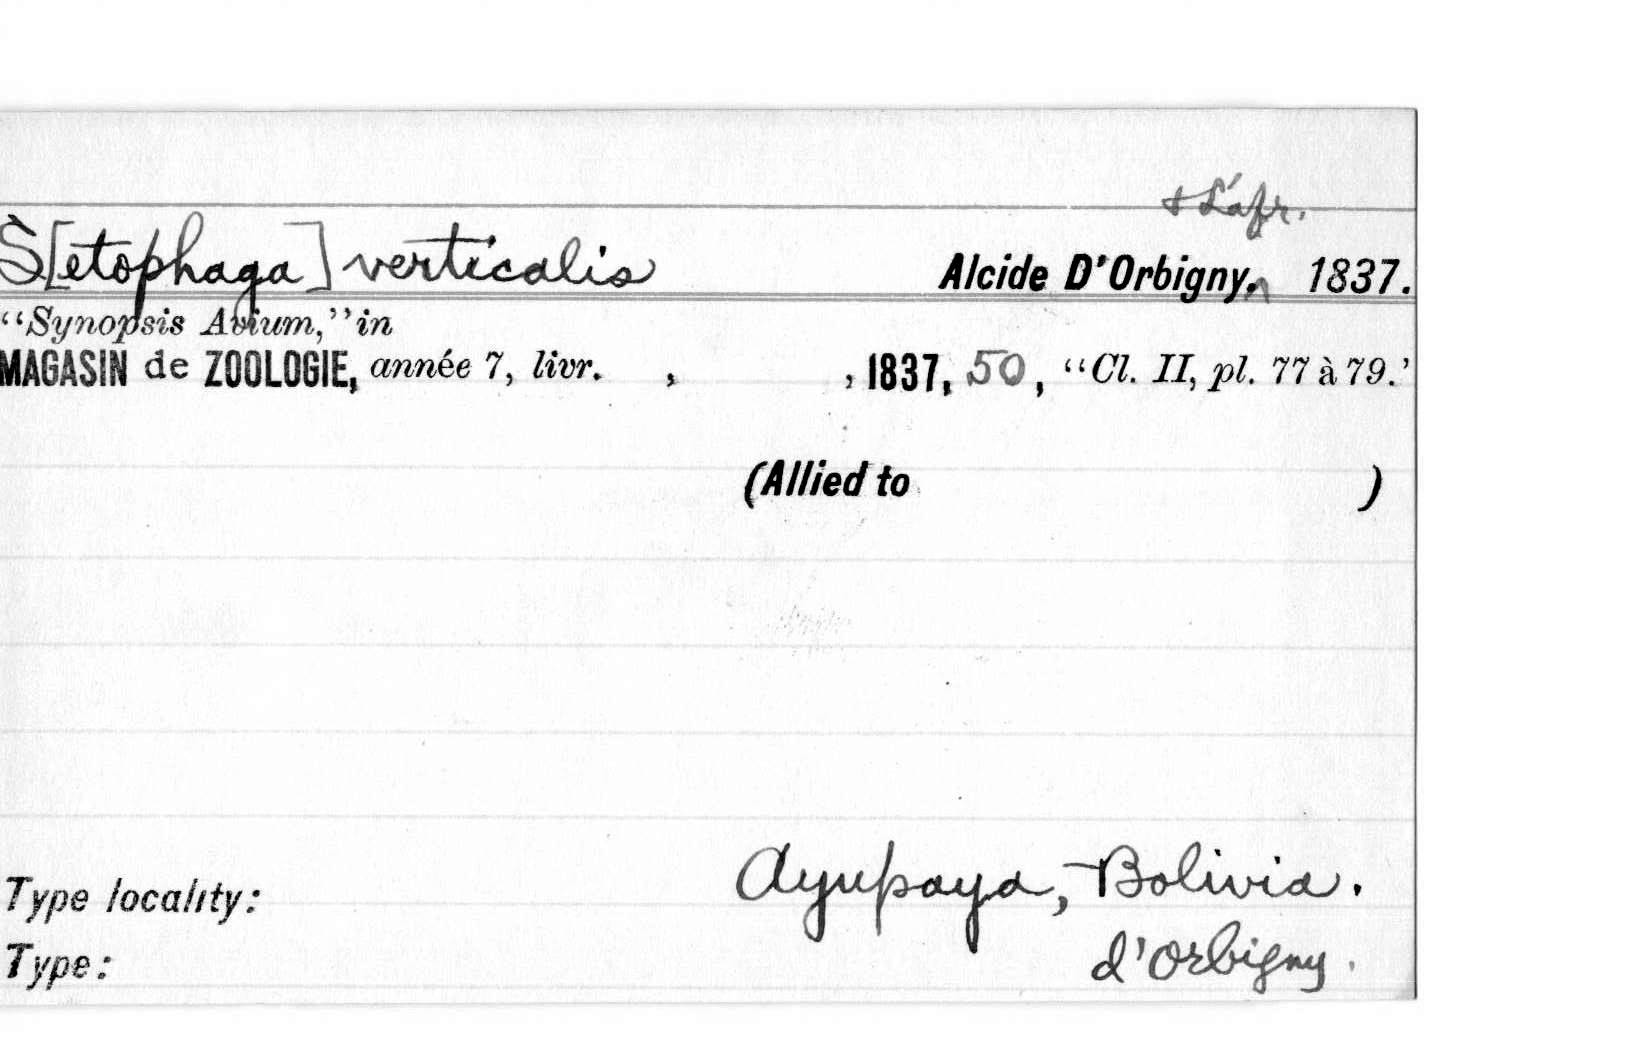 & Lafr.
S[etophaga] verticalis Alcide D'Orbigny. 1837.
“Synopsis Avium,” in
MAGASIN de ZOOLOGIE, année 7, livr. , , 1837, 50, “Cl. II, pl. 77 à 79.’
(Allied to )
Type locality: Ayupaya, Bolivia.
Type: d'Orbigny.